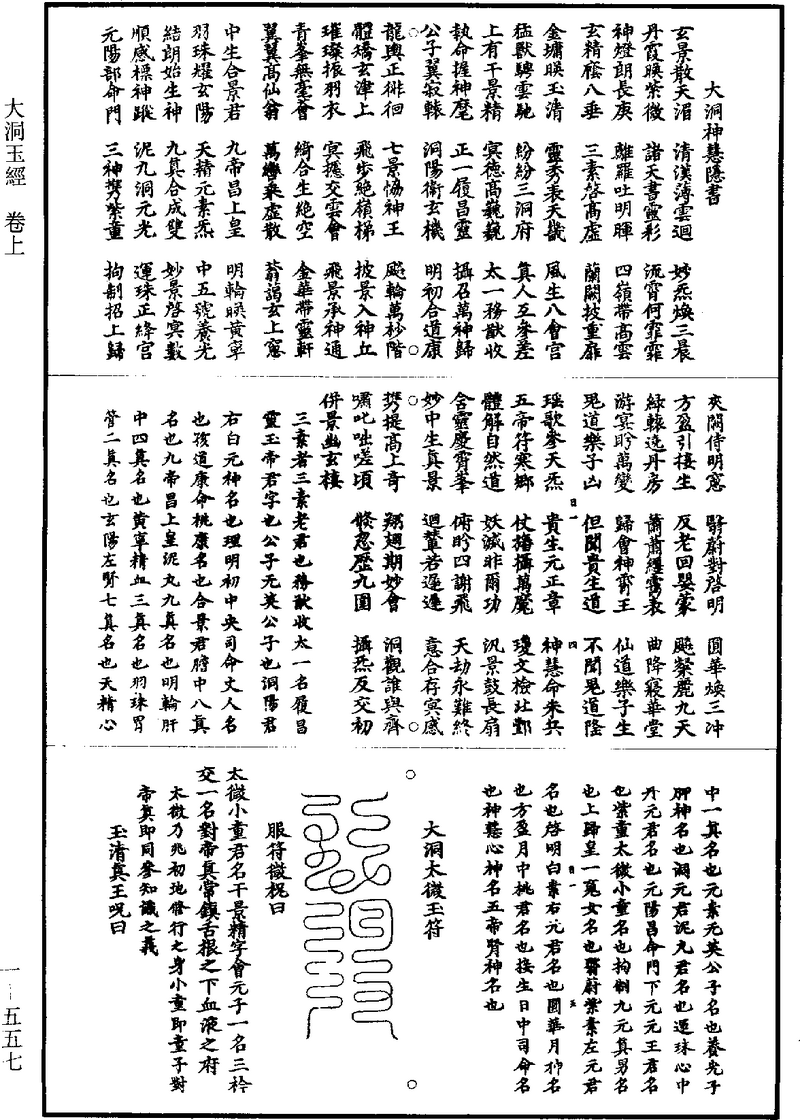 大洞玉經　卷上
一—五五七
大洞神慧隱書
玄景散天湄　清漢薄雲迴　妙炁煥三晨
丹霞暎紫微　諸天書靈彩　流霄何霏霏
神燈朗長庚　離羅吐明暉　四嶺帶高雲
玄精蔭八垂　三素啓高虛　蘭闕披重扉
金墉暎玉清　靈秀表天畿　風生八會宮
猛獸騁雲馳　紛紛三洞府　真人互參差
上有干景精　冥德高巍巍　太一務猷收
執命握神麾　正一履昌靈　攝召萬神歸
公子翼寂轅　洞陽衛玄機　明初合道康
龍輿正徘徊　七景協神王　飈輪萬杪階
體矯玄津上　飛步絕嶺梯　披景入神丘
璀璨振羽衣　冥摳交雲會　飛景承神通
青峯無毫會　綺合生絕空　金華帶靈軒
翼翼高仙翁　萬轡乘虛散　蓊藹玄上窓
中生合景君　九帝昌上皇　明輪暎黃寧
羽珠燿玄陽　天精元素炁　中五號養光
結朗始生神　九真合成雙　妙景啓冥數
順感標神蹤　泥九洞元光　運珠正絳宮
元陽部命門　三神攜紫童　拘制招上歸
夾闕侍明窓　翳蔚對啓明　圓華煥三冲
方盈引接生　反老回嬰蒙　飈粲麗九天
綠轅造丹房　蕭蕭經霄表　曲降寢華堂
游冥盻萬變　歸會神霄王　仙道樂子生
鬼道樂子凶　但聞貴生道　不聞鬼道隆
瑶歌參天炁　貴生元正章　神慧命朱兵
五帝符寒鄉　仗旛攝萬魔　瓊文檢北酆
體解自然道　妖滅非爾功　汎景鼓長扇
含靈慶霄峯　俯盻四謝飛　天劫永難終
妙中生真景　迴輦若遲遲　意合存冥感
携提高上奇　翔翅期妙會　洞觀誰與齊
嘯叱咄嗟頃　倐忽歷九圍　攝炁反交初
併景幽玄棲
三素者三素老君也務猷收太一名履昌
靈玉帝君字也公子无英公子也洞陽君
右白元神名也理明初中央司命丈人名
也孩道康命桃康名也合景君膽中八真
名也九帝昌上皇泥丸九真名也明輪肝
中四真名也黃寧精血三真名也羽珠胃
管二真名也玄陽左腎七真名也天精心
中一真名也元素无英公子名也養光子
脾神名也洞元君泥九君名也運珠心中
丹元君名也元陽昌命門下元元王君名
也紫童太微小童名也拘制九元真男名
也上歸皇一寬女名也翳蔚紫素左元君
名也啓明白素右元君名也圓華月神名
也方盈月中桃君名也接生日中司命名
也神慧心神名五帝腎神名也
大洞太微玉符
服符微祝曰
太微小童君名干景精字會元子一名三衿
交一名對帝真常鎮舌根之下血液之府
太微乃兆初地發行之身小童即童子對
帝真即同參知識之義
玉清真王呪曰